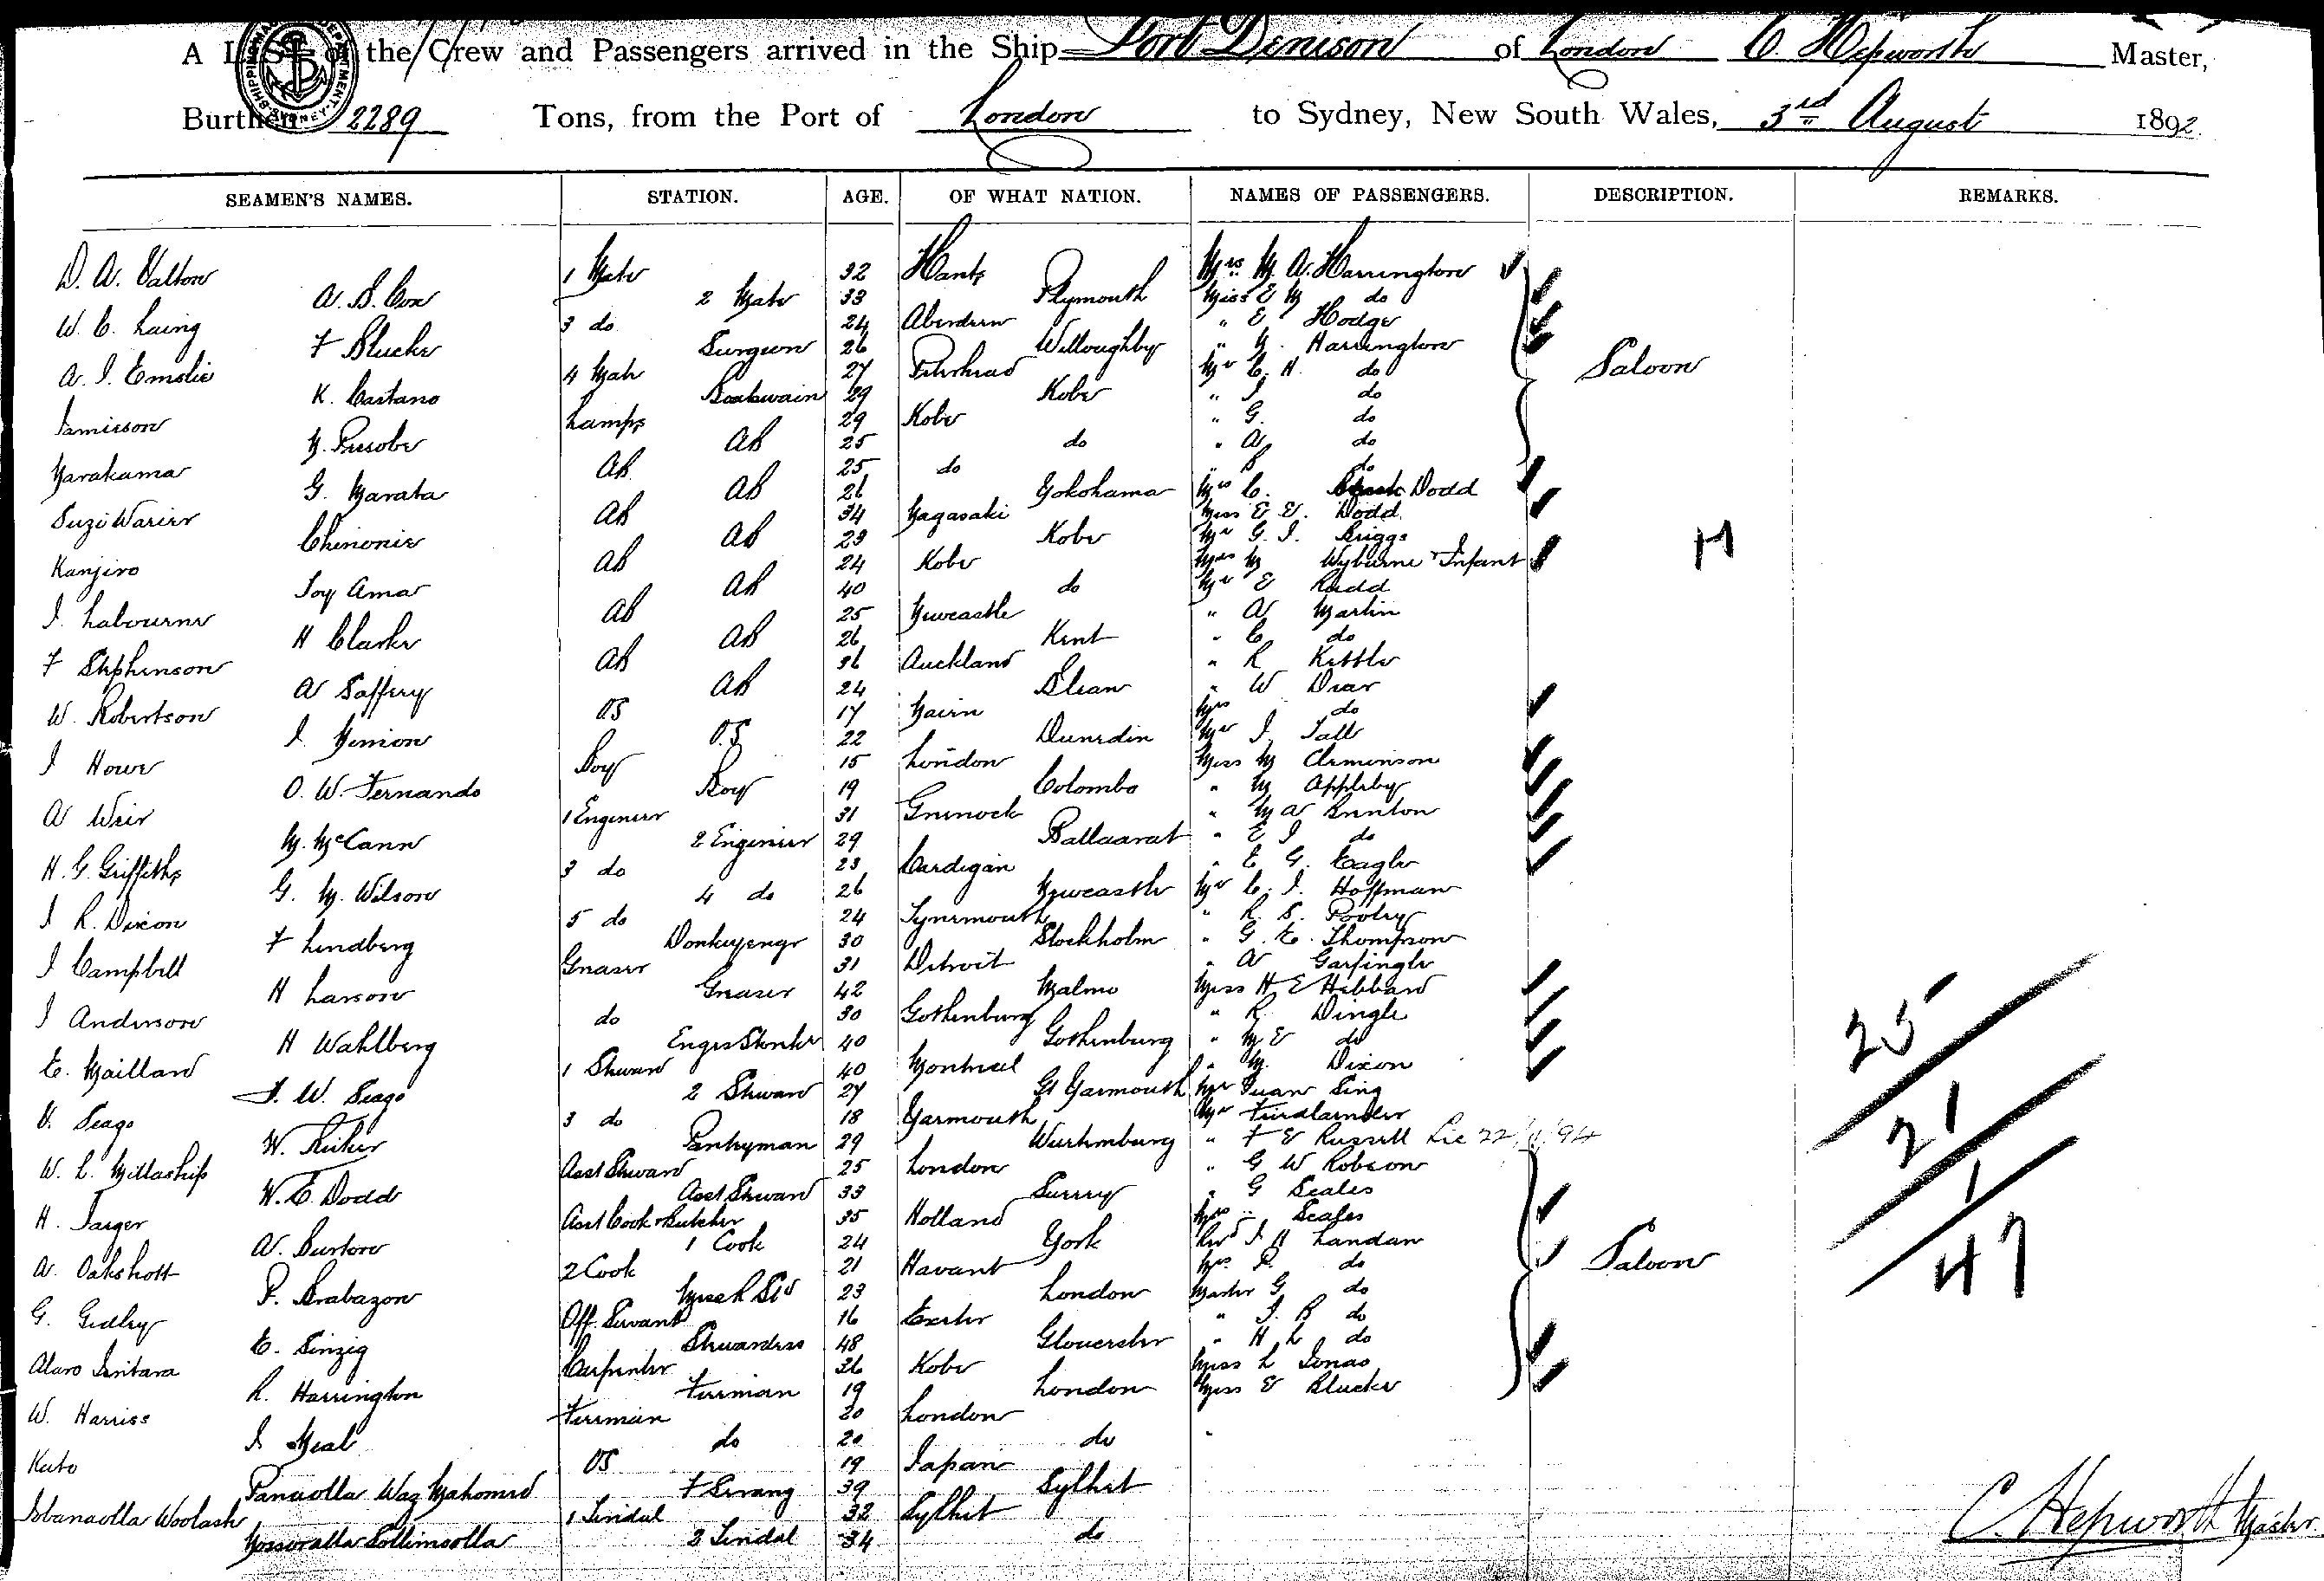 A LIST of the Crew and Passengers arrived in the Ship Port Denison of London C. Hepworth Master,
Burthen 2289 Tons, from the Port of London to Sydney, New South Wales, 3rd August 1892.
SEAMEN'S NAMES. STATION. AGE. OF WHAT NATION. NAMES OF PASSENGERS. DESCRIPTION. REMARKS.
D. A. 1 Mate 32 Hants Mrs M. A. Harrington
A. B. Cox 2 Mate 33 Plymouth Miss E M do
W. C. Laing 3 do 24 Aberdeen " E Hodge
F Blucke Surgeon 26 Willoughby " M. Harrington
A. J. Emslie 4 Mate 27 Peterhead Mr C. H. do Saloon
K. Castano Boatswain 29 Kobe " J do
Jamieson Lamps 29 Kobe " G. do
AB 25 do " A do
AB 25 do " B do
G. Marata AB 26 Yokohama Mrs C. Dodd
AB 34 Nagasaki Miss E E. Dodd
AB 23 Kobe Mr G. J. Briggs
Kanjiro AB 24 Kobe Mrs M Wyburne & Infant
Amar AB 40 do Mr E Rudd
J. Labourne AB 25 Newcastle " A Martin
H Clarke AB 26 Kent " C do
F Stephenson AB 36 Auckland " R Kettle
A Saffery AB 24 " W Dear
W. Robertson OS 17 Nairn Mrs do
J. O.S 22 Dunedin Mr J. Tall
J Howe Boy 15 London Miss M
O. W. Fernando Boy 19 Colombo " M Appleby
A Weir 1 Engineer 31 Greenock " M A Brenton
M. McCann 2 Engineer 29 Ballaarat " E J do
H. G. Griffiths 3 do 23 Cardigan " E G. Eagle
G. M. Wilson 4 do 26 Newcastle Mr C. J. Hoffman
J R. Dixon 5 do 24 Tynemouth " R. S. Pooley
F Lindberg Donkyengr 30 Stockholm " G. E. Thompson
J Campbell Greaser 31 Detroit " A
H Larson Greaser 42 Malmo Miss H E Hibbard
J Anderson do 30 Gothenburg " R Dingle
H Wahlberg 40 Gothenburg " M E do
E. Maillard 1 Steward 40 Montreal " M. Dixon
F. W. Seago 2 Steward 27 Gt Yarmouth Mr Quan Sing
V. Seago 3 do 18 Yarmouth Mr Friedlander
W. Pantryman 29 Wurtemburg " F E Russell
W. L. Millaship Asst Steward 25 London " G W Robson
W. E. Dodd Asst Steward 33 Surrey " G Scales
H. Jaeger Asst Cook & Butcher 35 Holland Mrs " Scales
A. Burton 1 Cook 24 York Rev J H Landau
A. Oakshott 2 Cook 21 Havant Mrs R. do Saloon
P. Brabazon 23 London Master G do
G. Gidley Off. Servant 16 Exeter " J. B do
E. Sinzig Stewardess 48 Gloucester " H L do
Carpenter 36 Kobe Miss L Jonas
R. Harrington Fireman 19 London Miss E Blucke
W. Harriss Fireman 20 London
J Neal do 20 do
Kato OS 19 Japan
39 Sylhet
1 Tindal 32 Sylhet
2 Tindal 34 do
25
21
1
47
C. Hepworth Master